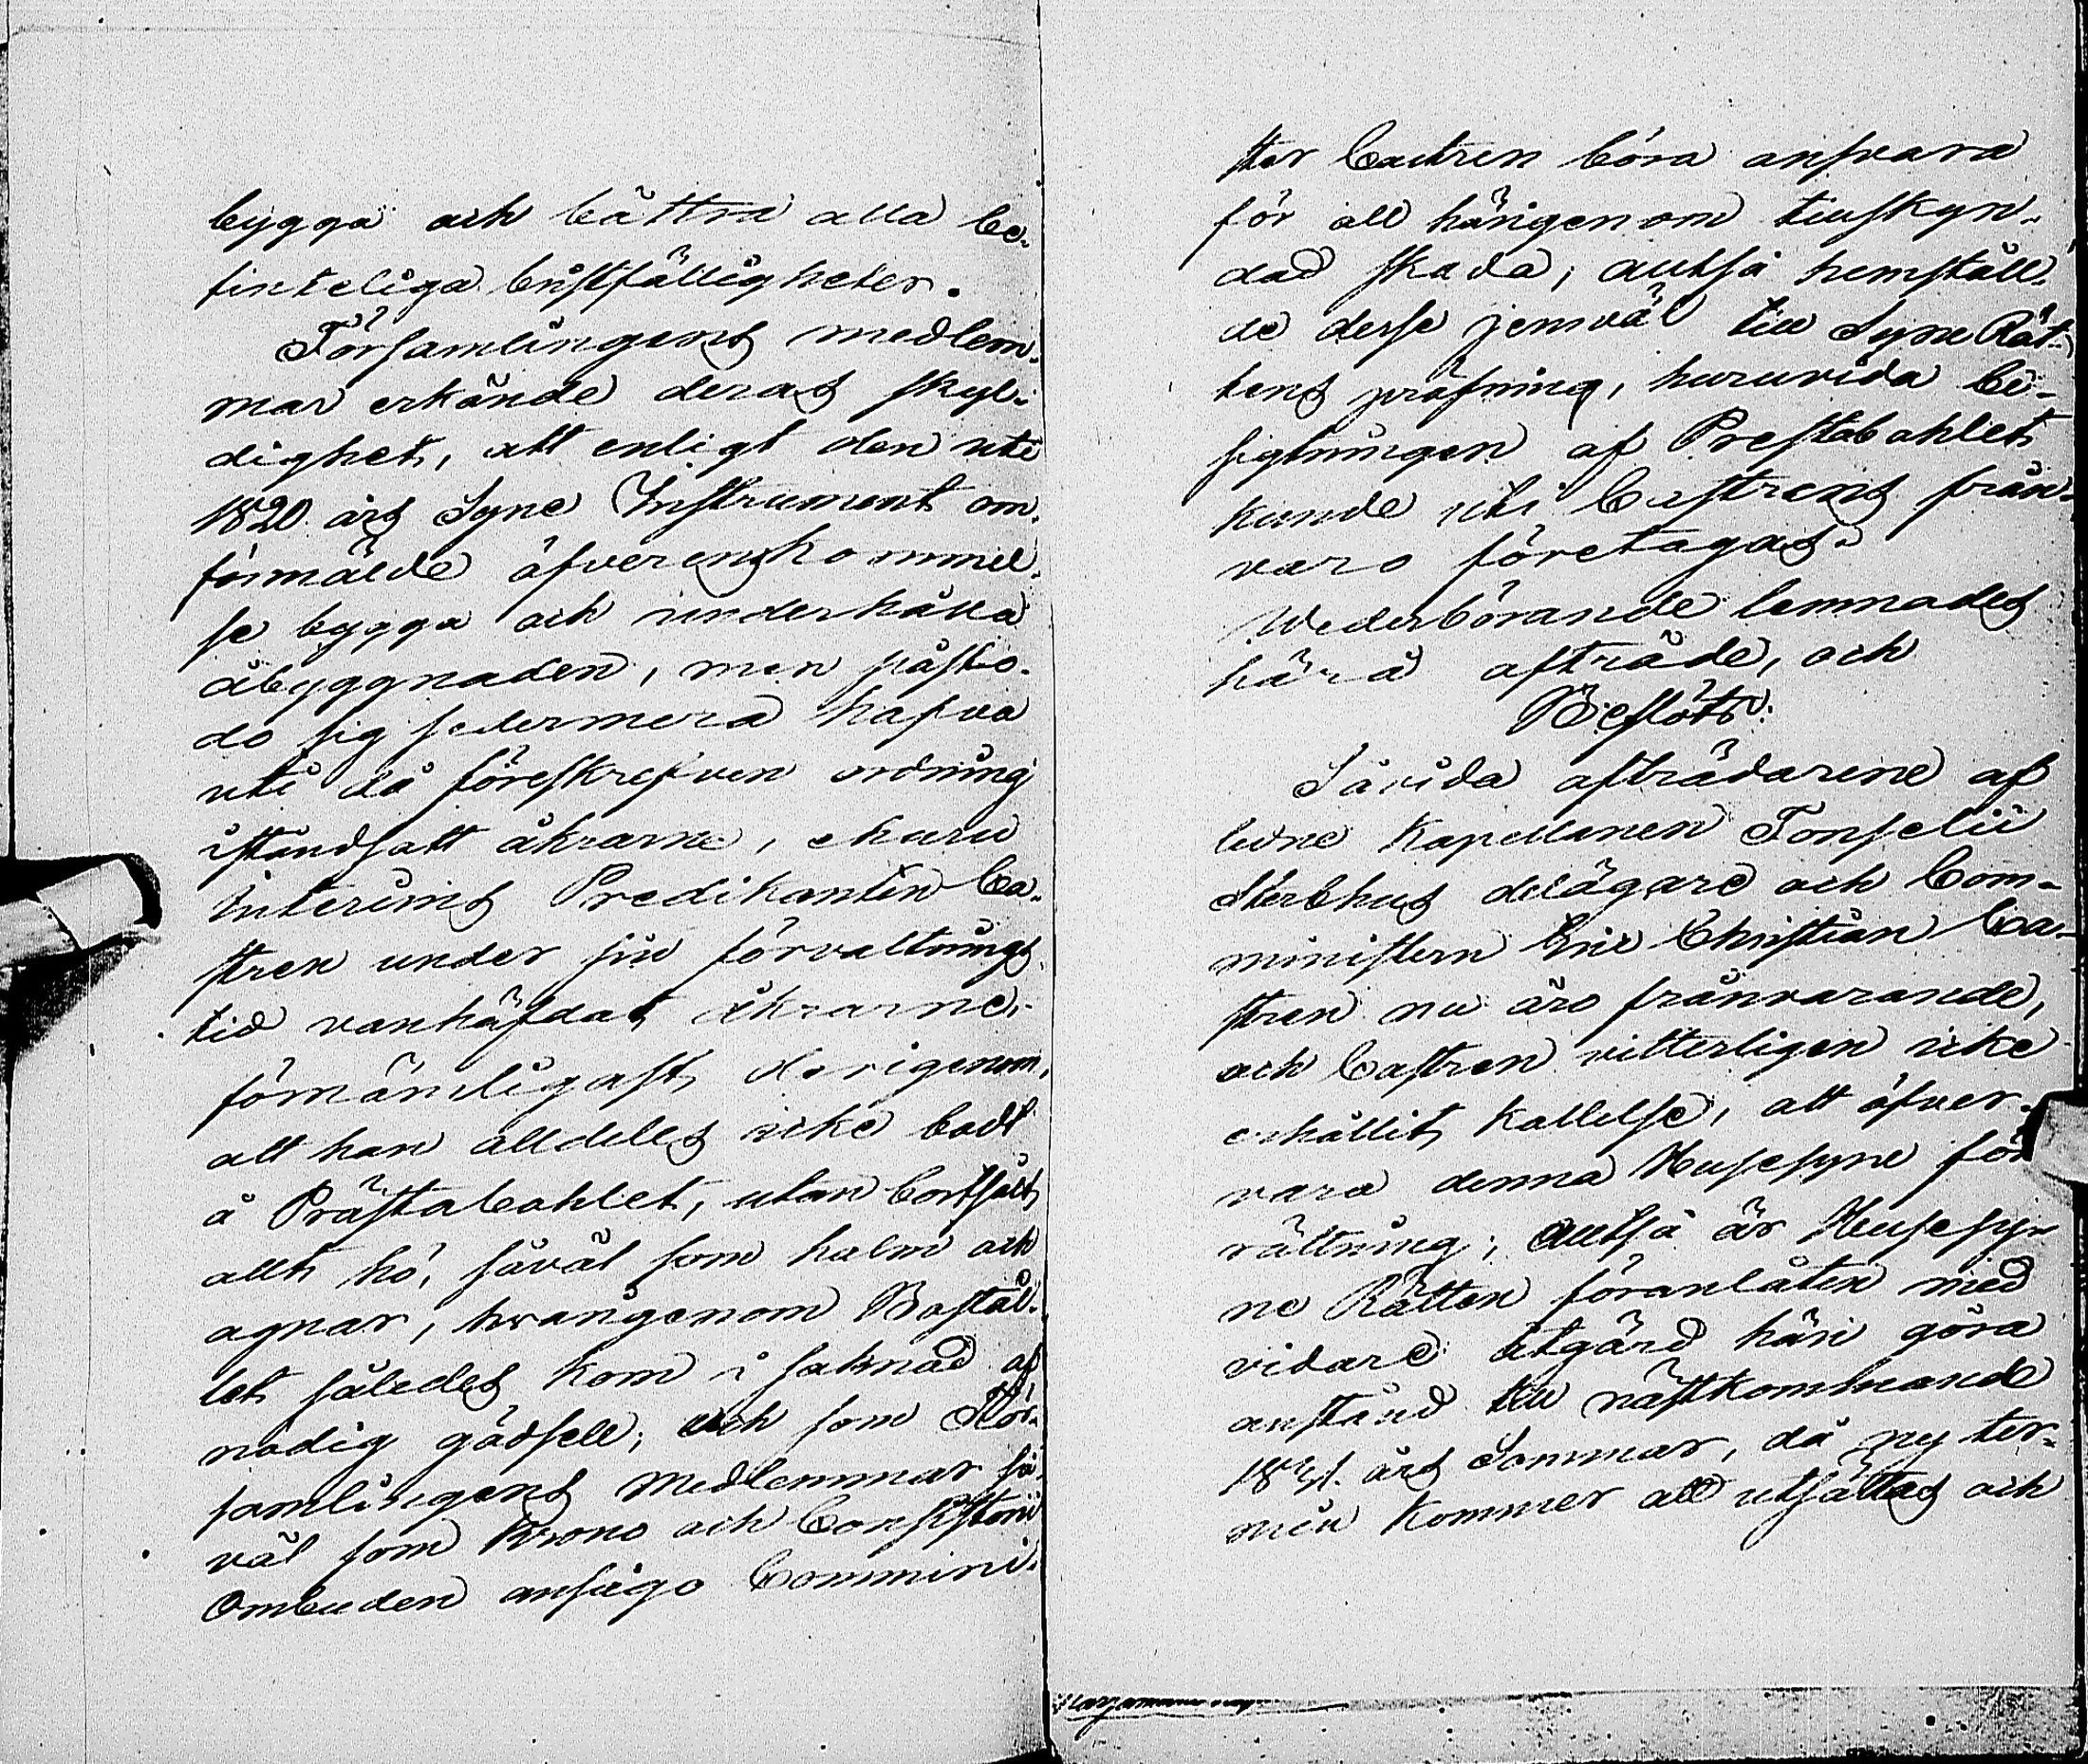 bygga och bättra alla be-
finteliga bristfälligheter.
Församlingens medlem-
mar erkände deras skyl-
dighet, att enligt den uti
1820 års Syne Instrument om-
förmälde öfverenskommel-
se bygga och underhålla
åbyggnaden, men påsto-
do sig sedermera hafva
uti då föreskrefven ordning
iståndsatt åkrarne, ehuru
Interims Predikanten Ca-
stren under sin förvaltnings
tid vanhäfdat åkrarne,
förnämligast derigenom,
att han alldeles icke bodt
å Prästabohlet, utan bortfört
allt hö, såväl som halm och
agnar, hvarigenom Bostäl-
let således kom i saknad af
nödig gödsell; och som För-
samlingens medlemmar så-
väl som Krono och Consistorii
Ombuden ansågo Commini-
ster Castren böra ansvara
för all härigenom tillskyn-
dad skada; alltså hemställ-
de desse jemväl till Syne Rät-
tens pröfning, huruvida be-
sigtningen af Prestabohlet
kunde uti Castrens från-
varo företagas.
Wederbörande lemnades
härå afträde, och
Beslöts:
Såvida afträdarene af
lidne Kapellanen Tonselii
Sterbhus delägare och Com-
ministern Eric Christian Ca-
stren nu äro frånvarande,
och Castren vitterligen icke
erhållit kallelse, att öfver-
vara denna Husesyne för
rättning; alltså är Husesy-
ne Rätten föranlåten med
vidare åtgärd häri göra
anstånd till nästkommande
års Sommar, då ny ter-
min kommer att utsättas och